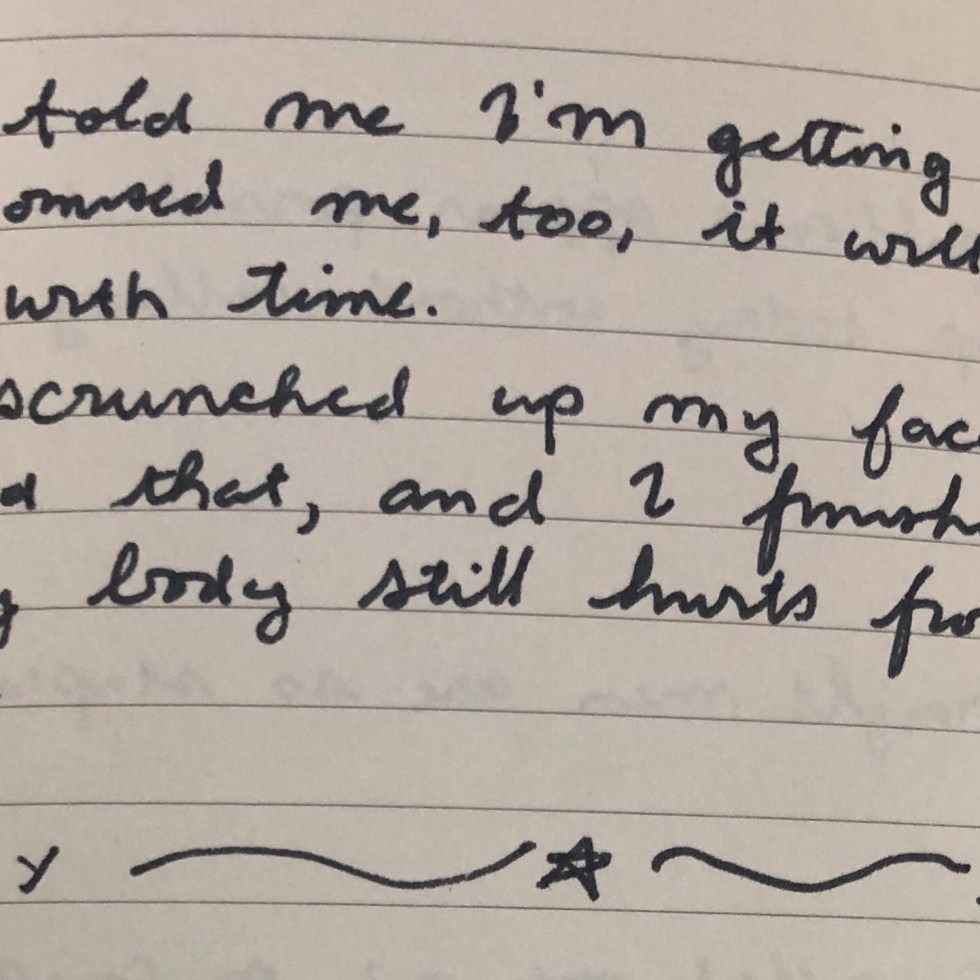 told me I'm getting
omised me, too, it will
with time.
scrunched up my fac
d that, and I finish
y body still hurts fro
y